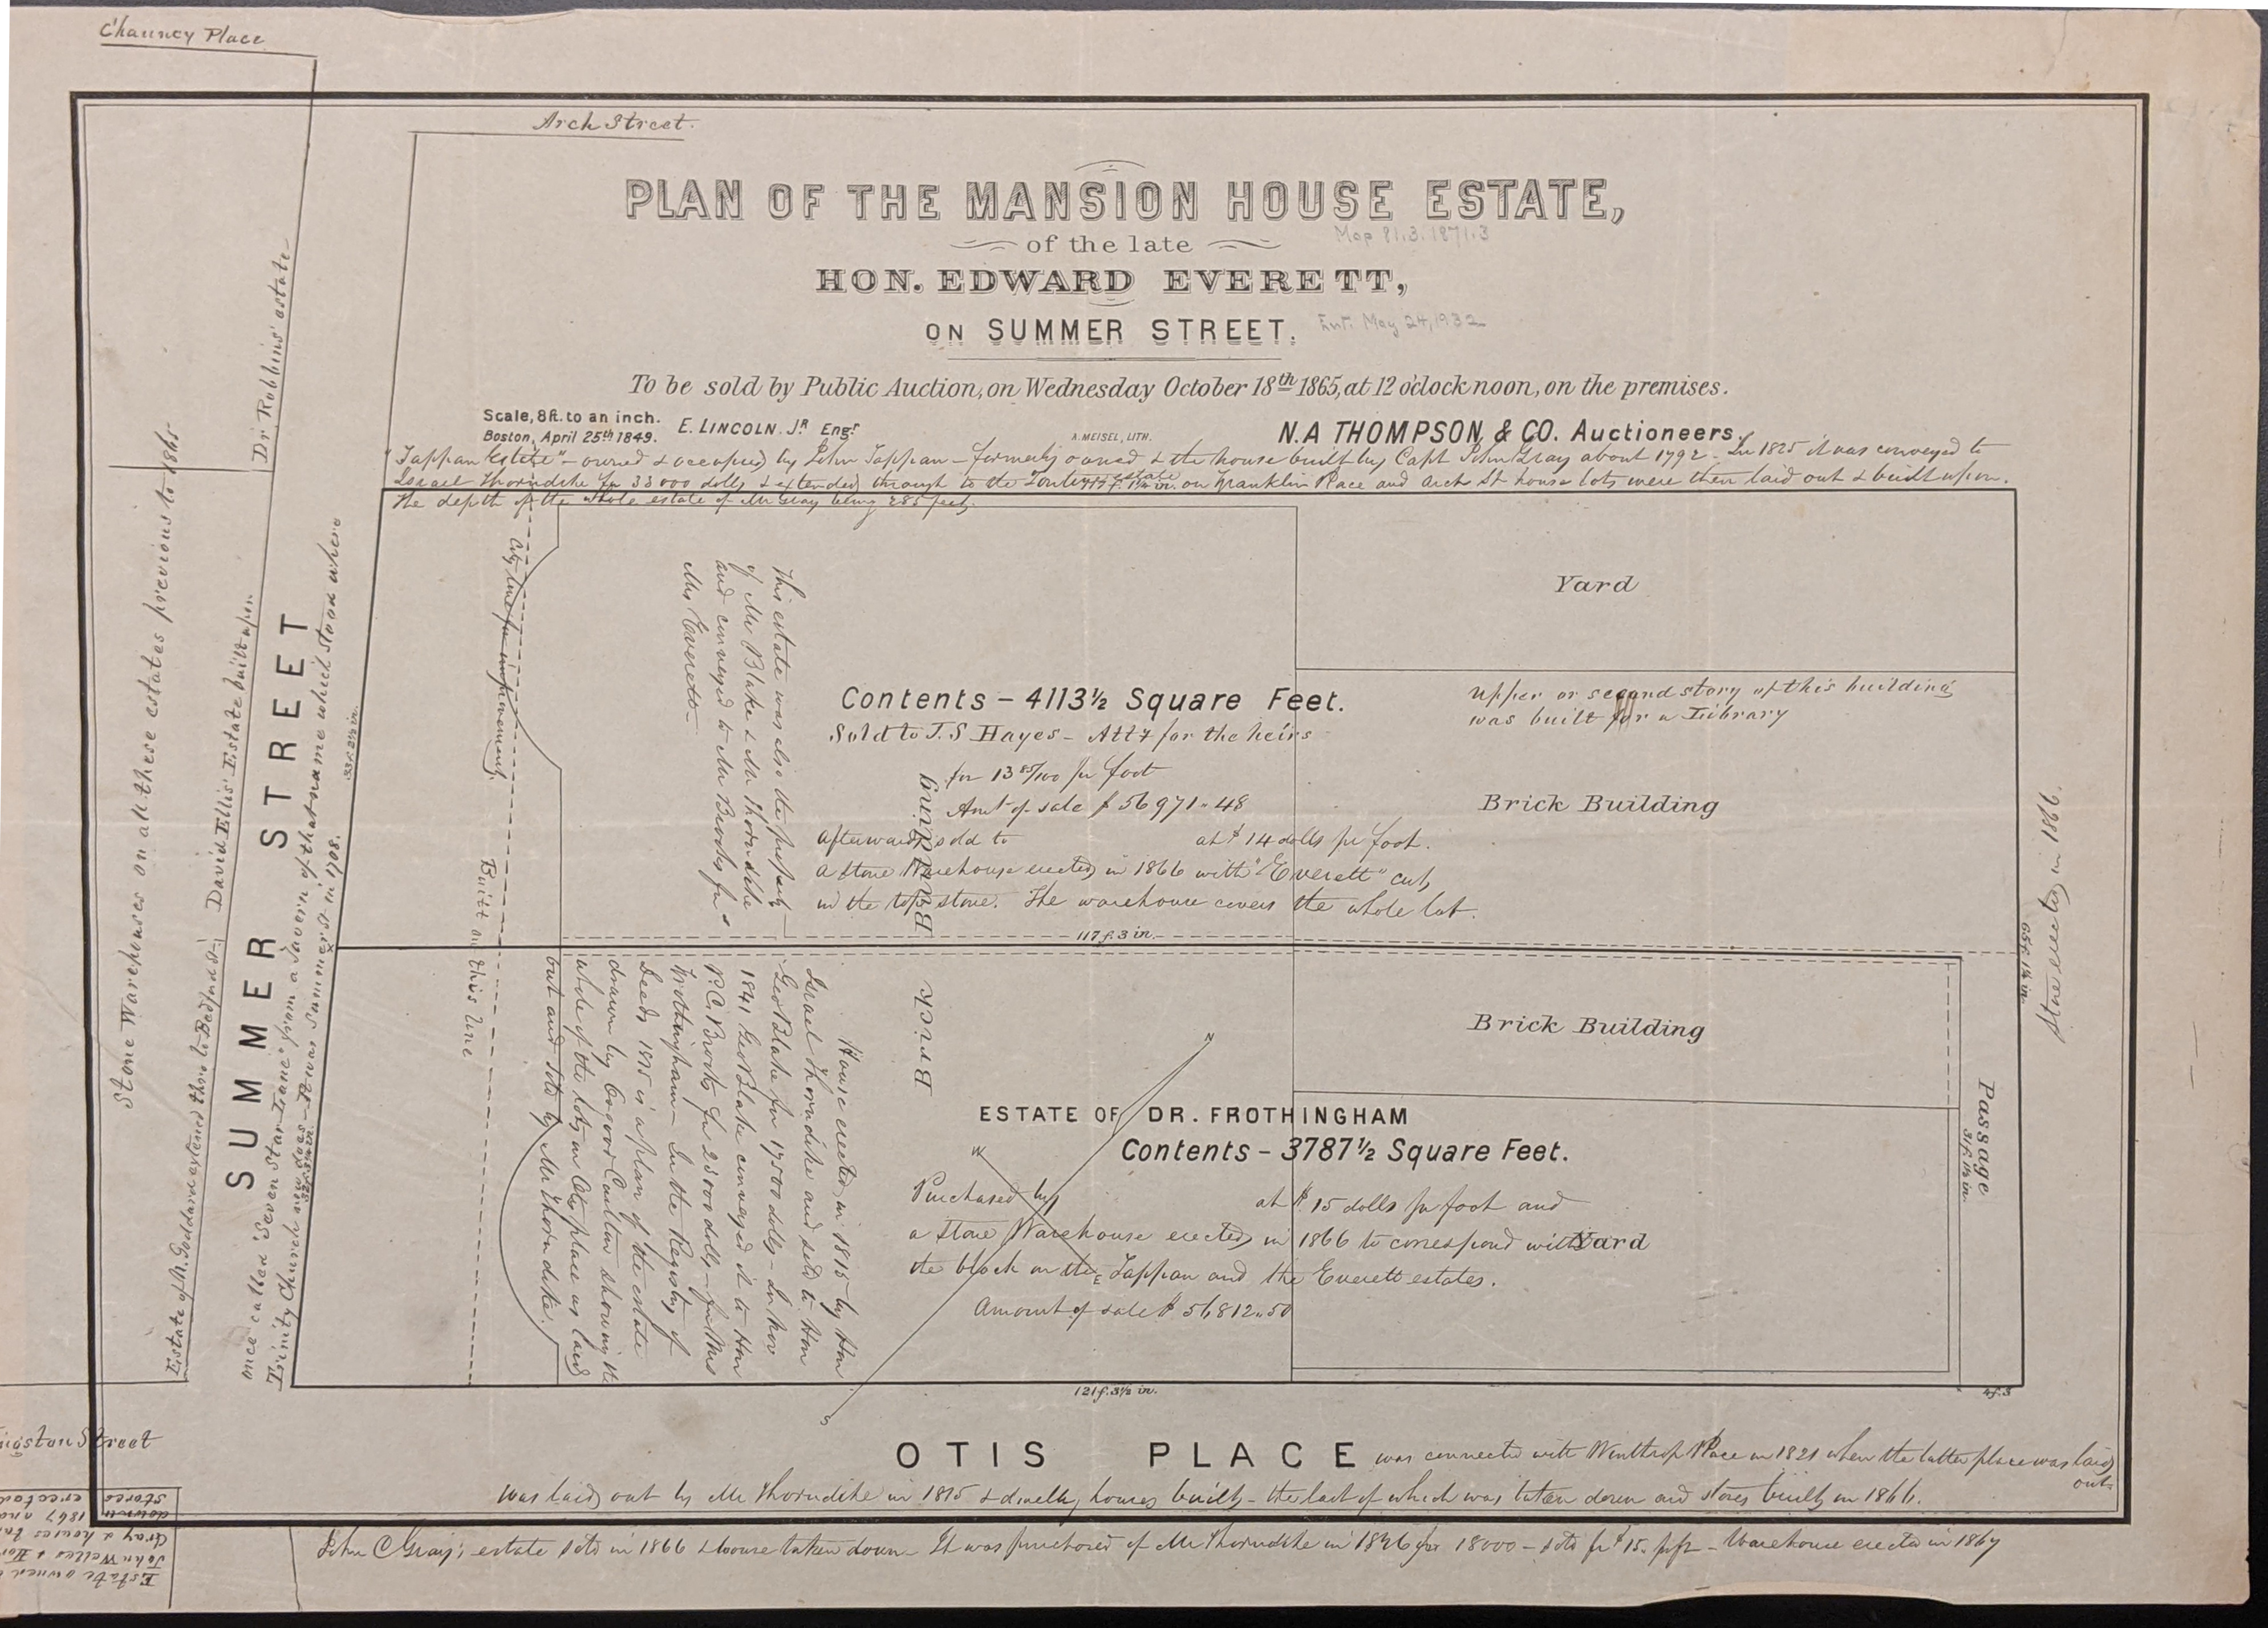 Chauncy Place
Arch Street.
PLAN OF THE MANSION HOUSE ESTATE,
of the late
Map 81.3.1871.3
HON. EDWARD EVERETT,
ON SUMMER STREET.
Ent. May 24, 1932
To be sold by Public Auction, on Wednesday October 18th 1865, at 12 o'clock noon, on the premises.
Scale, 8ft. to an inch.
Boston, April 25th 1849.
E. LINCOLN. JR Engr
A. MEISEL, LITH.
N.A THOMPSON & CO. Auctioneers.
"Tappan Estate" - owned & occupied by John Tappan - formerly owned & the house built by Capt John Gray about 1792. In 1825 it was conveyed to
Israel Thorndike for 33000 dolls & extended through to the Tontine estate on Franklin Place and Arch St house lots were then laid out & built upon.
the depth of the whole estate of Mr Gray being 285 feet.
117 f. 1¼ in.
Dr. Robbins' estate
Stone Warehouses on all these estates previous to 1865
David Ellis' Estate built upon
Estate of N. Goddard extended thro to Bedford St
SUMMER STREET
once called "Seven Star Lane" from a Tavern of that name which stood where
Trinity Church now does - It was Summer St in 1708.
33 f. 2½ in.
32 f. 3¼ in.
City line for improvement.
Built on this line
This estate was also the property
of Mr Blake & Mr Thorndike
and conveyed to Mr Brooks for
Mrs Everett
Yard
Contents - 4113½ Square Feet.
Sold to J. S Hayes - Atty for the heirs
for 13 85/100 per foot
Amt of sale $ 56971.48
afterwards sold to at $ 14 dolls per foot.
a stone Warehouse erected in 1866 with "Everett" cut
in the top stone. The warehouse covers the whole lot.
upper or second story of this building
was built for a Library
Brick Building
Brick Building
117 f. 3 in.
65 f. 1¼ in.
Store erected in 1866.
House erected in 1815 by Hon
Israel Thorndike and sold to Hon
Geo Blake for 17500 dolls - In Nov
1841 Geo Blake conveyed it to Hon
P. C. Brooks for 25000 dolls - for Mrs
Frothingham - In the Registry of
Deeds 1815 is a plan of the estate
drawn by Osgood Carlton showing the
whole of the lots on Otis place as laid
out and sold by Mr Thorndike.
Brick Building
N
W
E
S
ESTATE OF DR. FROTHINGHAM
Contents - 3787½ Square Feet.
Purchased by at $ 15 dolls per foot and
a stone Warehouse erected in 1866 to correspond with
the block on the Tappan and the Everett estates.
Amount of sale $ 56812.50
Yard
Passage
31 f. 1½ in.
121 f. 3½ in.
4 f. 3
OTIS PLACE was connected with Winthrop Place in 1821 when the latter place was laid
out
was laid out by Mr Thorndike in 1815 & dwelling houses built - the last of which was taken down and stores built in 1866.
John C Gray's estate sold in 1866 & house taken down - It was purchased of Mr Thorndike in 1826 for 18000 - sold for $15. pr ft - Warehouse erected in 1867
Street
Estate owned
John Welles & Hon
Gray & houses
down 1867 and
stores erected